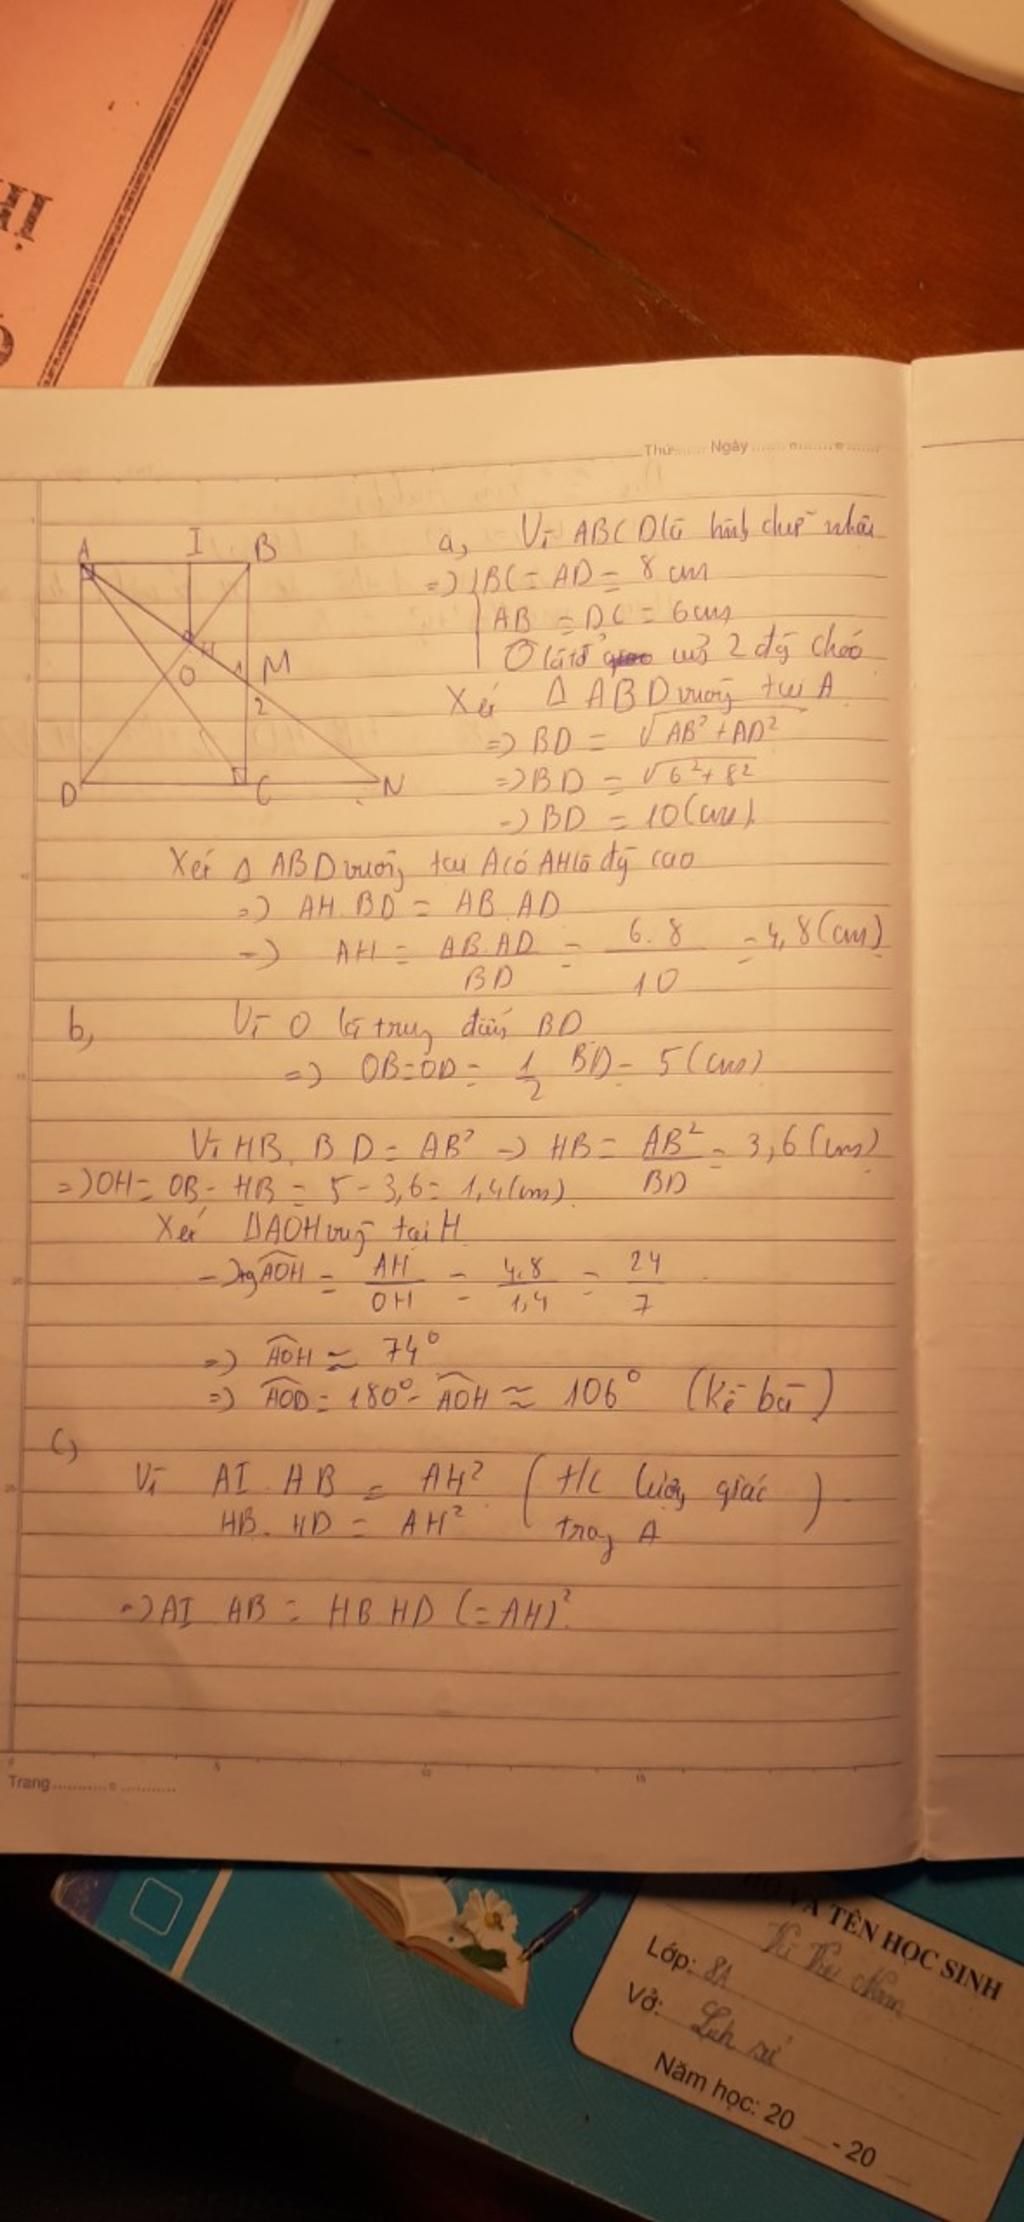 Thứ....... Ngày ........o........o.......
a, Vì ABCD là hình chữ nhật
=> BC = AD = 8 cm
AB = DC = 6 cm
O là tđ của 2 đg chéo
Xét Δ ABD vuông tại A
=> BD = √AB² + AD²
=> BD = √6² + 8²
=> BD = 10 (cm)
A I B
H
1 M
O 2
D C N
Xét Δ ABD vuông tại A có AH là đg cao
=> AH. BD = AB. AD
=> AH = AB. AD / BD = 6. 8 / 10 = 4,8 (cm)
b, Vì O là trung điểm BD
=> OB = OD = 1/2 BD = 5 (cm)
Vì HB. BD = AB² => HB = AB² / BD = 3,6 (cm)
=> OH = OB - HB = 5 - 3,6 = 1,4 (cm)
Xét Δ AOH vuông tại H
=> tg AOH = AH / OH = 4,8 / 1,4 = 24 / 7
=> AOH ≈ 74°
=> AOD = 180° - AOH ≈ 106° (Kề bù)
c)
Vì AI. AB = AH² (HC lượng giác
HB. HD = AH² trong Δ)
=> AI AB = HB HD (= AH)²
Trang ...........o ............
VÀ TÊN HỌC SINH
Lớp: 8A
Vở: Lịch sử
Năm học: 20 __ - 20 __